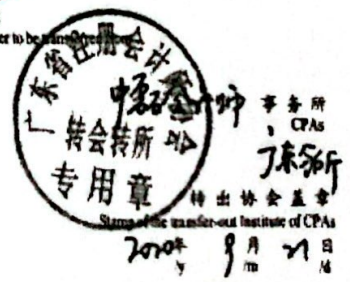 er to be transferred from
广东省注册会计师协会
转会转所
专用章
事务所
CPAs
转出协会盖章
Stamp of the transfer-out Institute of CPAs
2020年 9月 21日
y /m /d